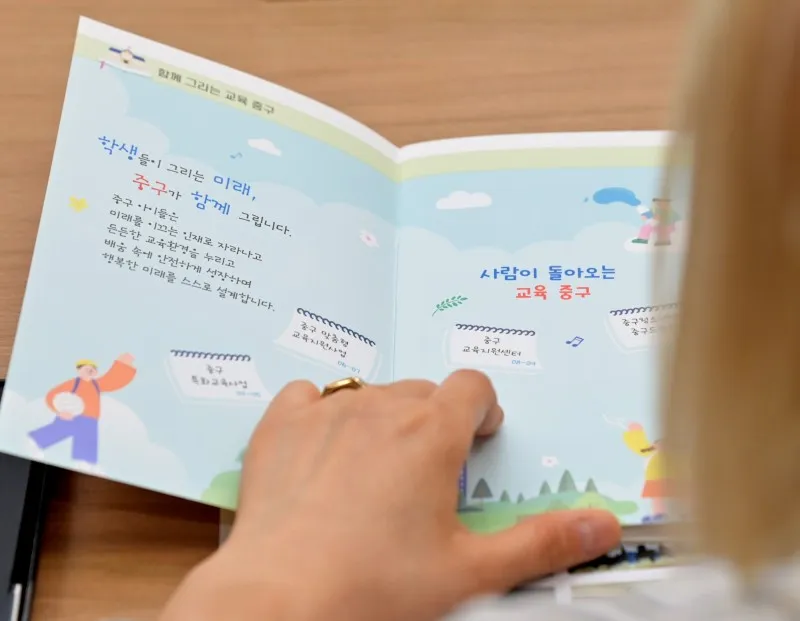 함께 그리는 교육 중구
학생들이 그리는 미래,
중구가 함께 그립니다.
중구 아이들은
미래를 이끄는 인재로 자라나고
든든한 교육환경을 누리고
배움 속에 안전하게 성장하며
행복한 미래를 스스로 설계합니다.
중구 맞춤형
교육지원사업
06-07
중구
특화교육사업
사람이 돌아오는
교육 중구
중구
교육지원센터
08-09